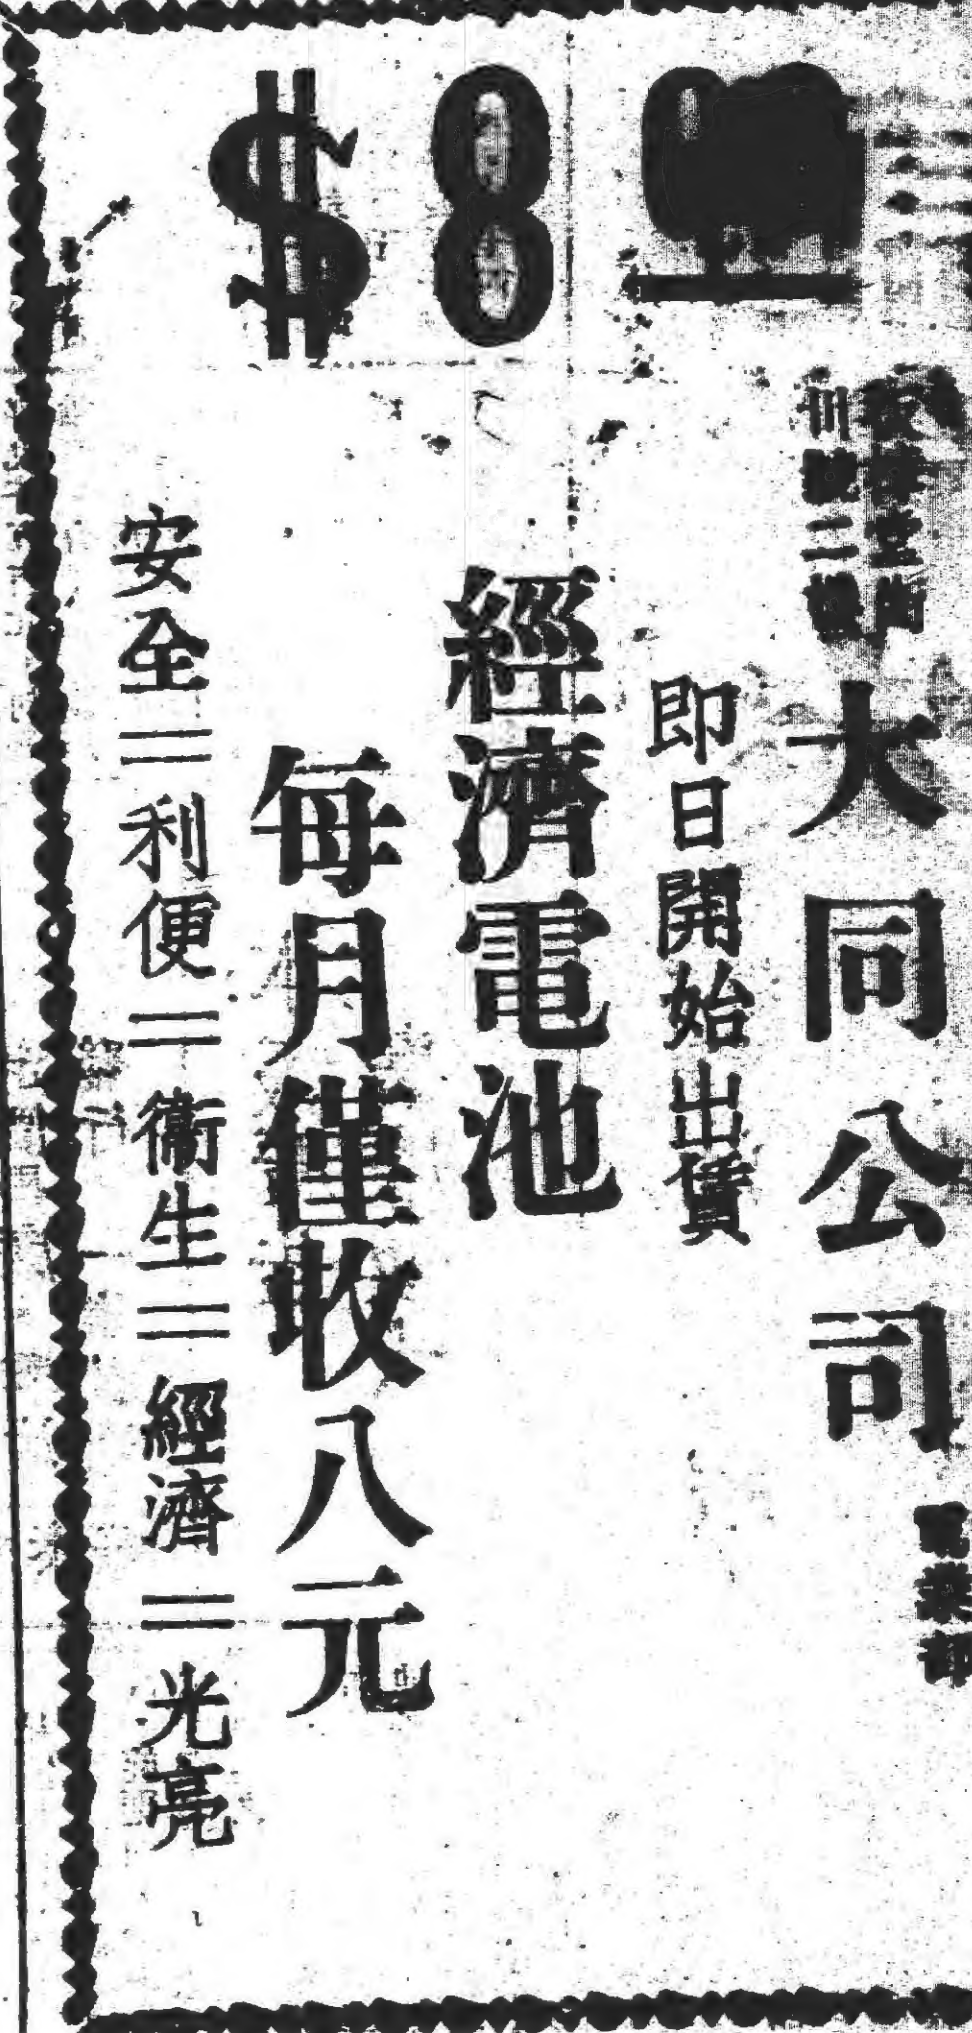 $8
大同公司
即日開始出賃
經濟電池
每月僅收八元
安全＝利便＝衞生＝經濟＝光亮